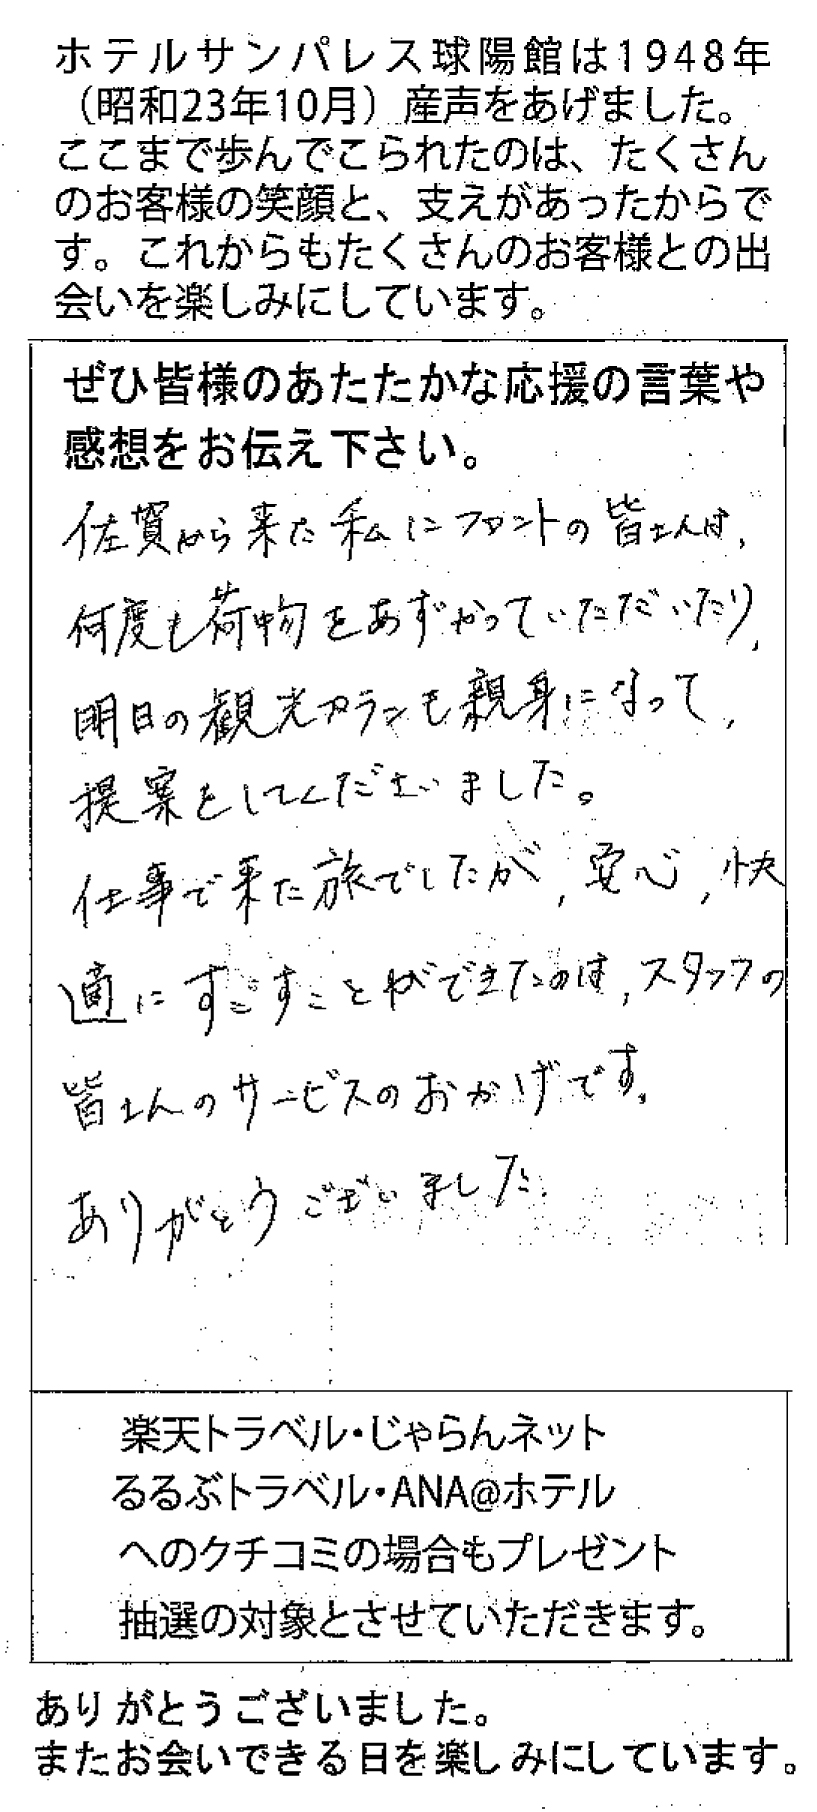 ホテルサンパレス球陽館は1948年
（昭和23年10月）産声をあげました。
ここまで歩んでこられたのは、たくさん
のお客様の笑顔と、支えがあったからで
す。これからもたくさんのお客様との出
会いを楽しみにしています。
ぜひ皆様のあたたかな応援の言葉や
感想をお伝え下さい。
佐賀から来た私にフロントの皆さんは、
何度も荷物をあずかっていただいたり、
明日の観光プランも親身になって、
提案をしてくださいました。
仕事で来た旅でしたが、安心、快
適にすごすことができたのは、スタッフの
皆さんのサービスのおかげです。
ありがとうございました
楽天トラベル・じゃらんネット
るるぶトラベル・ANA@ホテル
へのクチコミの場合もプレゼント
抽選の対象とさせていただきます。
ありがとうございました。
またお会いできる日を楽しみにしています。